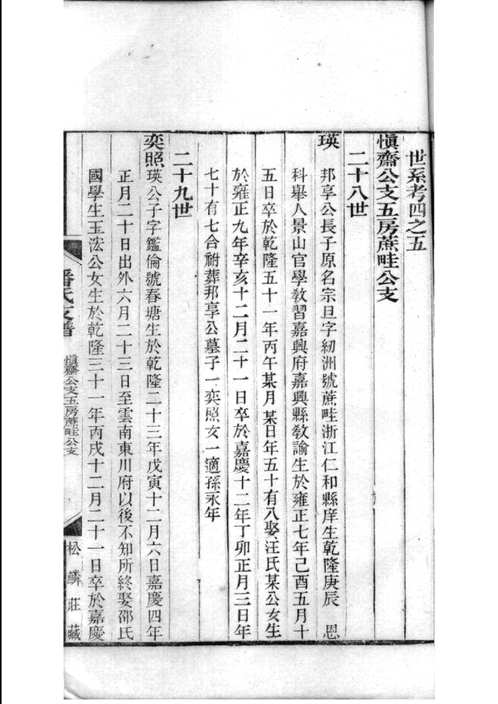 世系考四之五
慎齋公支五房蔗畦公支
二十八世
瑛 邦享公長子原名宗旦字紉洲號蔗畦浙江仁和縣庠生乾隆庚辰 恩
科舉人景山官學教習嘉興府嘉興縣敎諭生於雍正七年己酉五月十
五日卒於乾隆五十一年丙午某月某日年五十有八娶汪氏某公女生
於雍正九年辛亥十二月二十一日卒於嘉慶十二年丁卯正月三日年
七十有七合祔葬邦享公墓子一奕照女一適孫永年
二十九世
奕照 瑛公子字鑑倫號春塘生於乾隆二十三年戊寅十二月六日嘉慶四年
正月二十日出外六月二十三日至雲南東川府以後不知所終娶邵氏
國學生玉浤公女生於乾隆三十一年丙戌十二月二十一日卒於嘉慶
潘氏支譜
慎齋公支五房蔗畦公支
松鱗莊藏